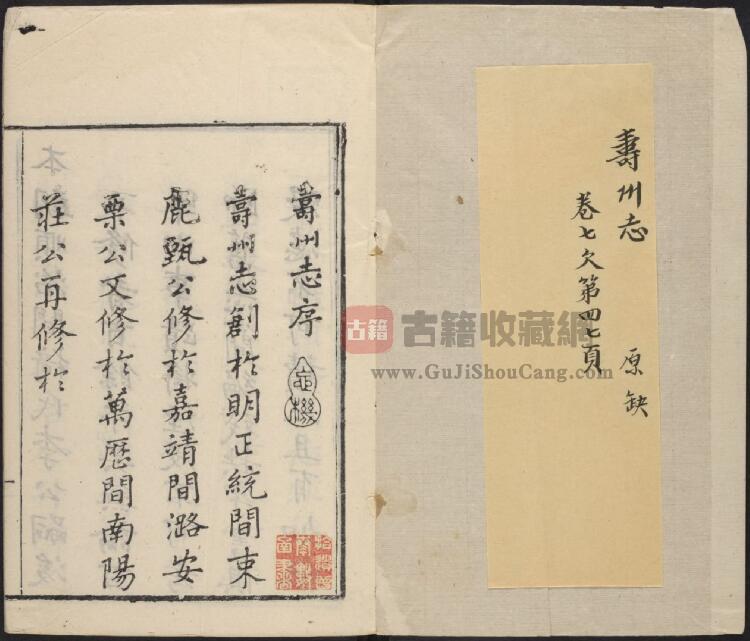 壽州志
卷七欠第四七頁
原缺
壽州志序
壽州志創於明正統間束
鹿甄公修於嘉靖間潞安
栗公又修於萬歷間南陽
莊公再修於
古籍
古籍收藏網
www.GuJiShouCang.com